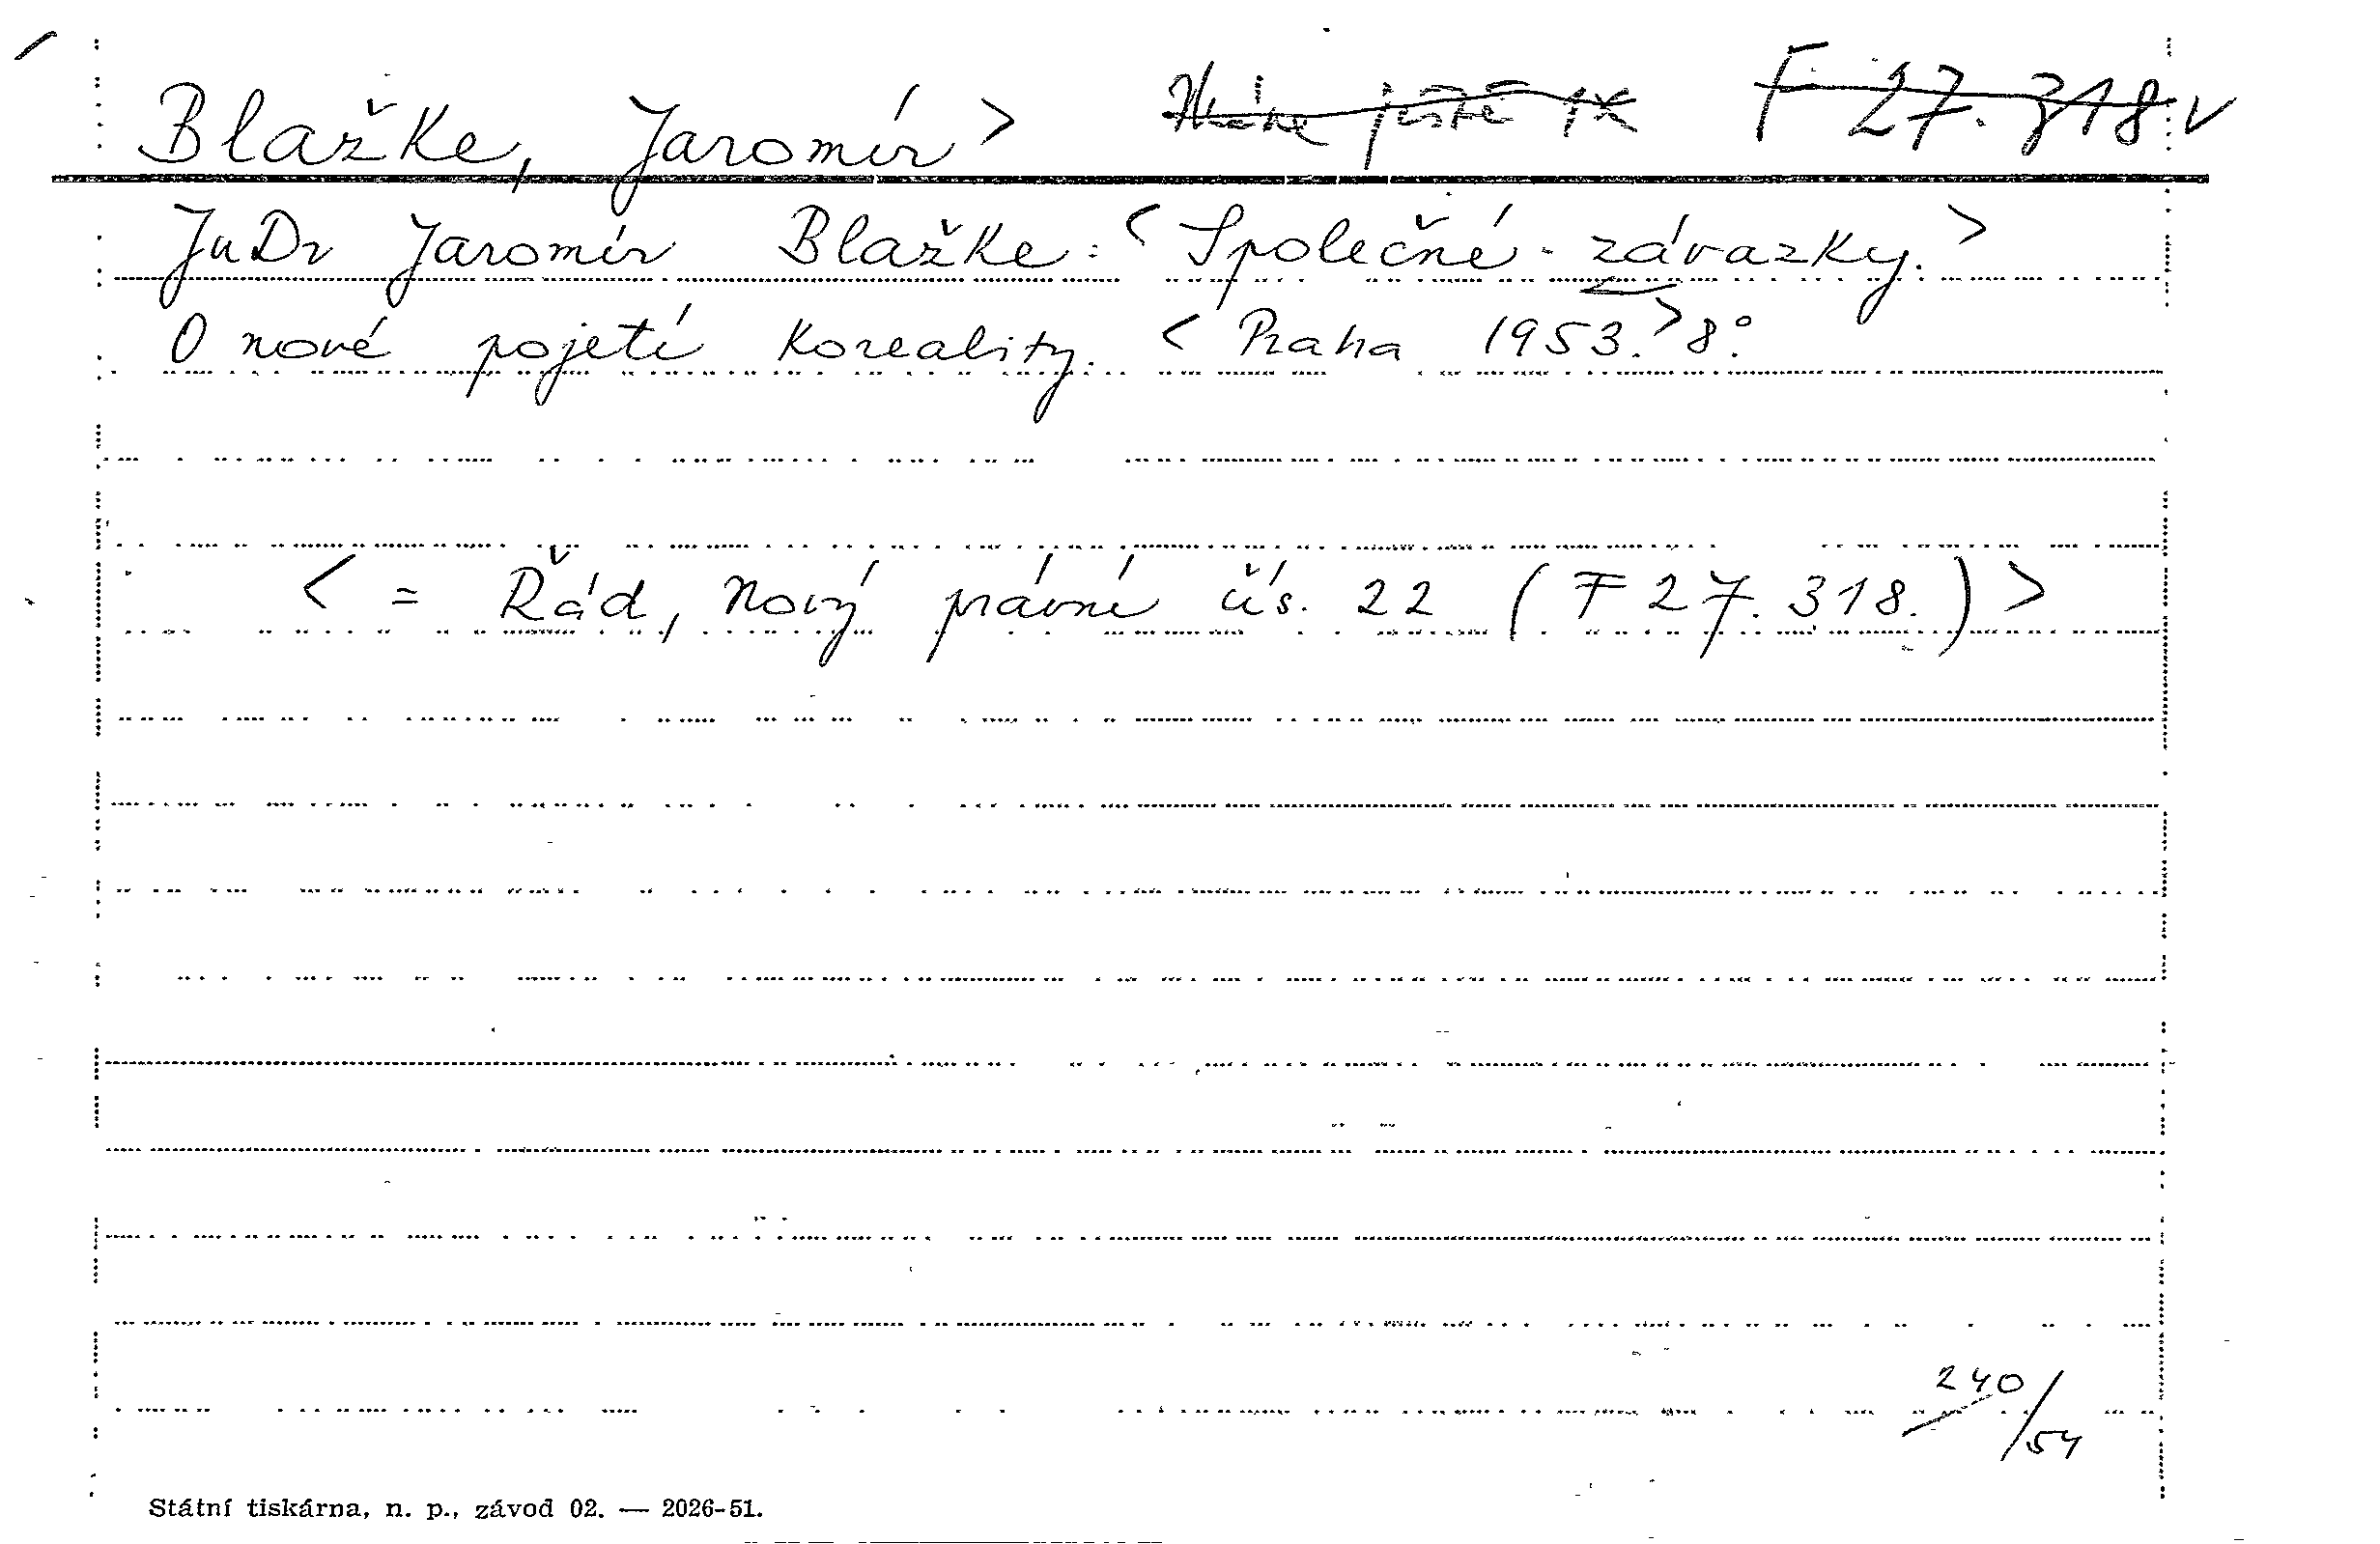 Blažke, Jaromír > ještě 1x F 27.318 v
JuDr Jaromír Blažke: < Společné závazky. >
O nové pojetí Koreality. < Praha 1953. > 8°.
< = Řád, Nový právní čís. 22 ( F 27.318. ) >
240/54
Státní tiskárna, n. p., závod 02. — 2026-51.